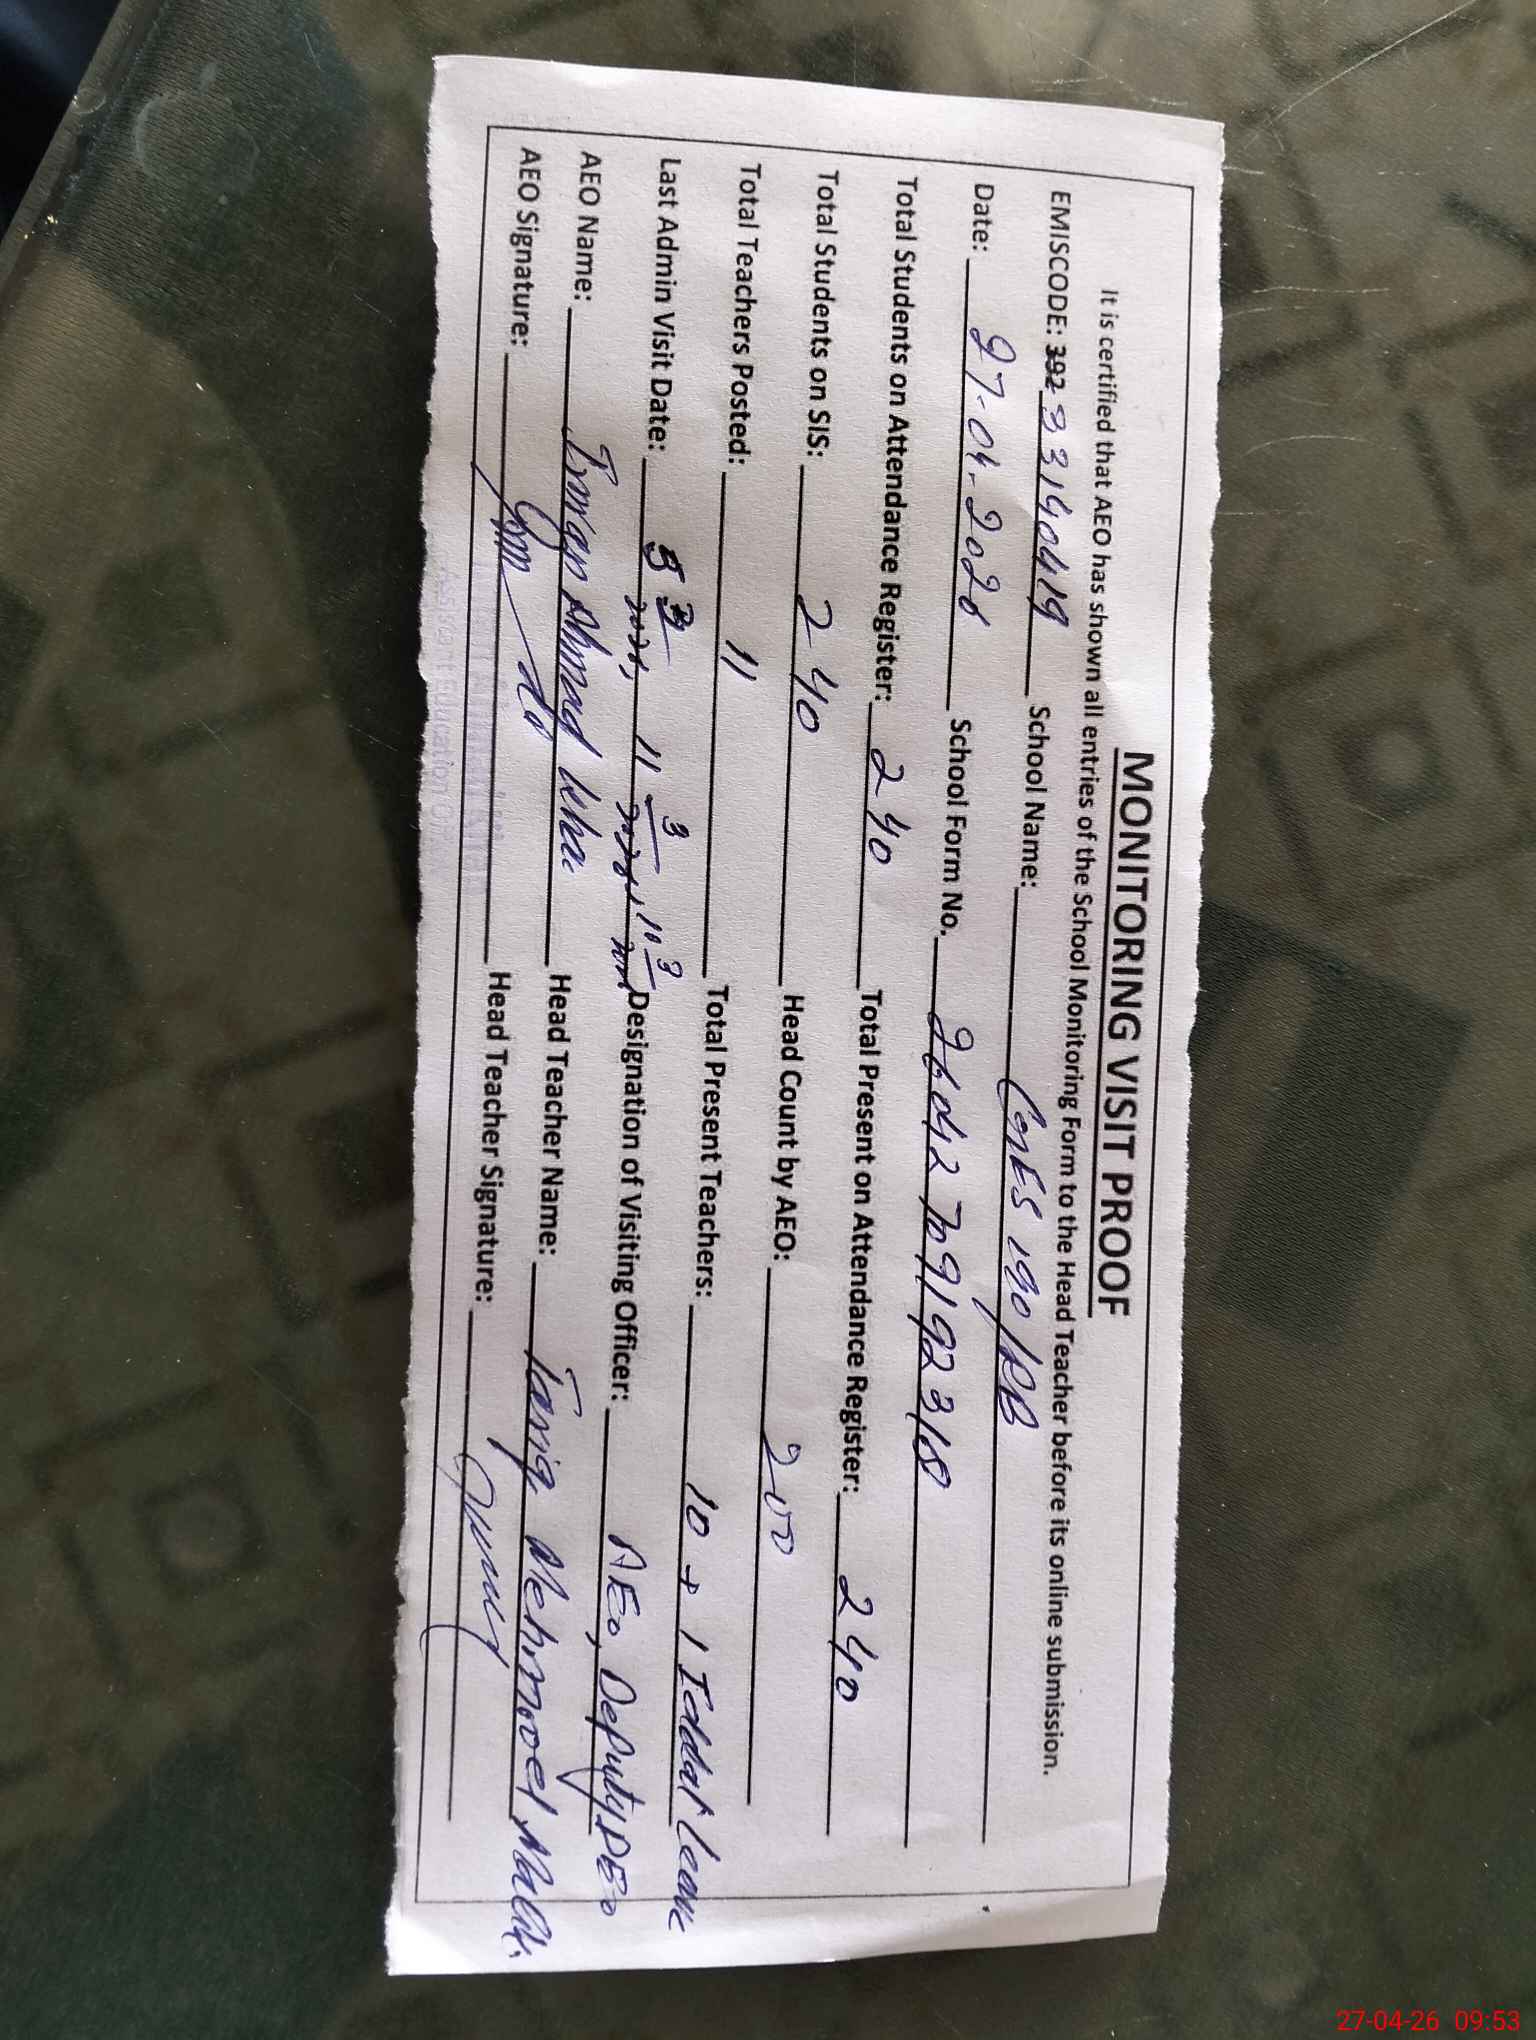 MONITORING VISIT PROOF
It is certified that AEO has shown all entries of the School Monitoring Form to the Head Teacher before its online submission.
EMISCODE: 33140419 School Name: GGES 190/RB
Date: 27-04-2026 School Form No. 2604270919231
Total Students on Attendance Register: 240 Total Present on Attendance Register: 240
Total Students on SIS: 240 Head Count by AEO: 200
Total Teachers Posted: 11 Total Present Teachers: 10 + 1 Iddat Leave
Last Admin Visit Date: 11 3 10 3 Designation of Visiting Officer: AEO, Deputy DEO
AEO Name: Imran Ahmad Head Teacher Name: Tariq Mehmood Malik
AEO Signature: Head Teacher Signature:
Assistant Education
27-04-26 09:53